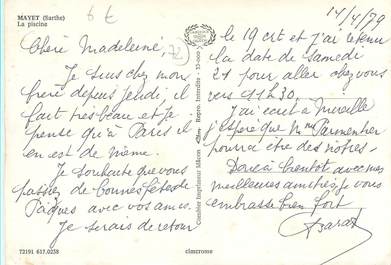 MAYET (Sarthe)
La piscine
6 €
14/4/79
Chère Madeleine,
Je suis chez mon
frère depuis jeudi, il
fait très beau et je
pense qu'à Paris il
en est de même.
Je souhaite que vous
passiez de bonnes fêtes de
Pâques avec vos amis.
Je serais de retour
le 19 crt et j'ai retenu
la date de samedi
21 pour aller chez vous
vers 11 H 30.
J'ai écrit à Mireille
j'espère que Mme Parmentier
pourra être des nôtres.
Donc à bientôt avec mes
meilleures amitiés je vous
embrasse bien fort
72191 617.0258
cimcrome
Combier Imprimeur Mâcon
Repro. Interdite